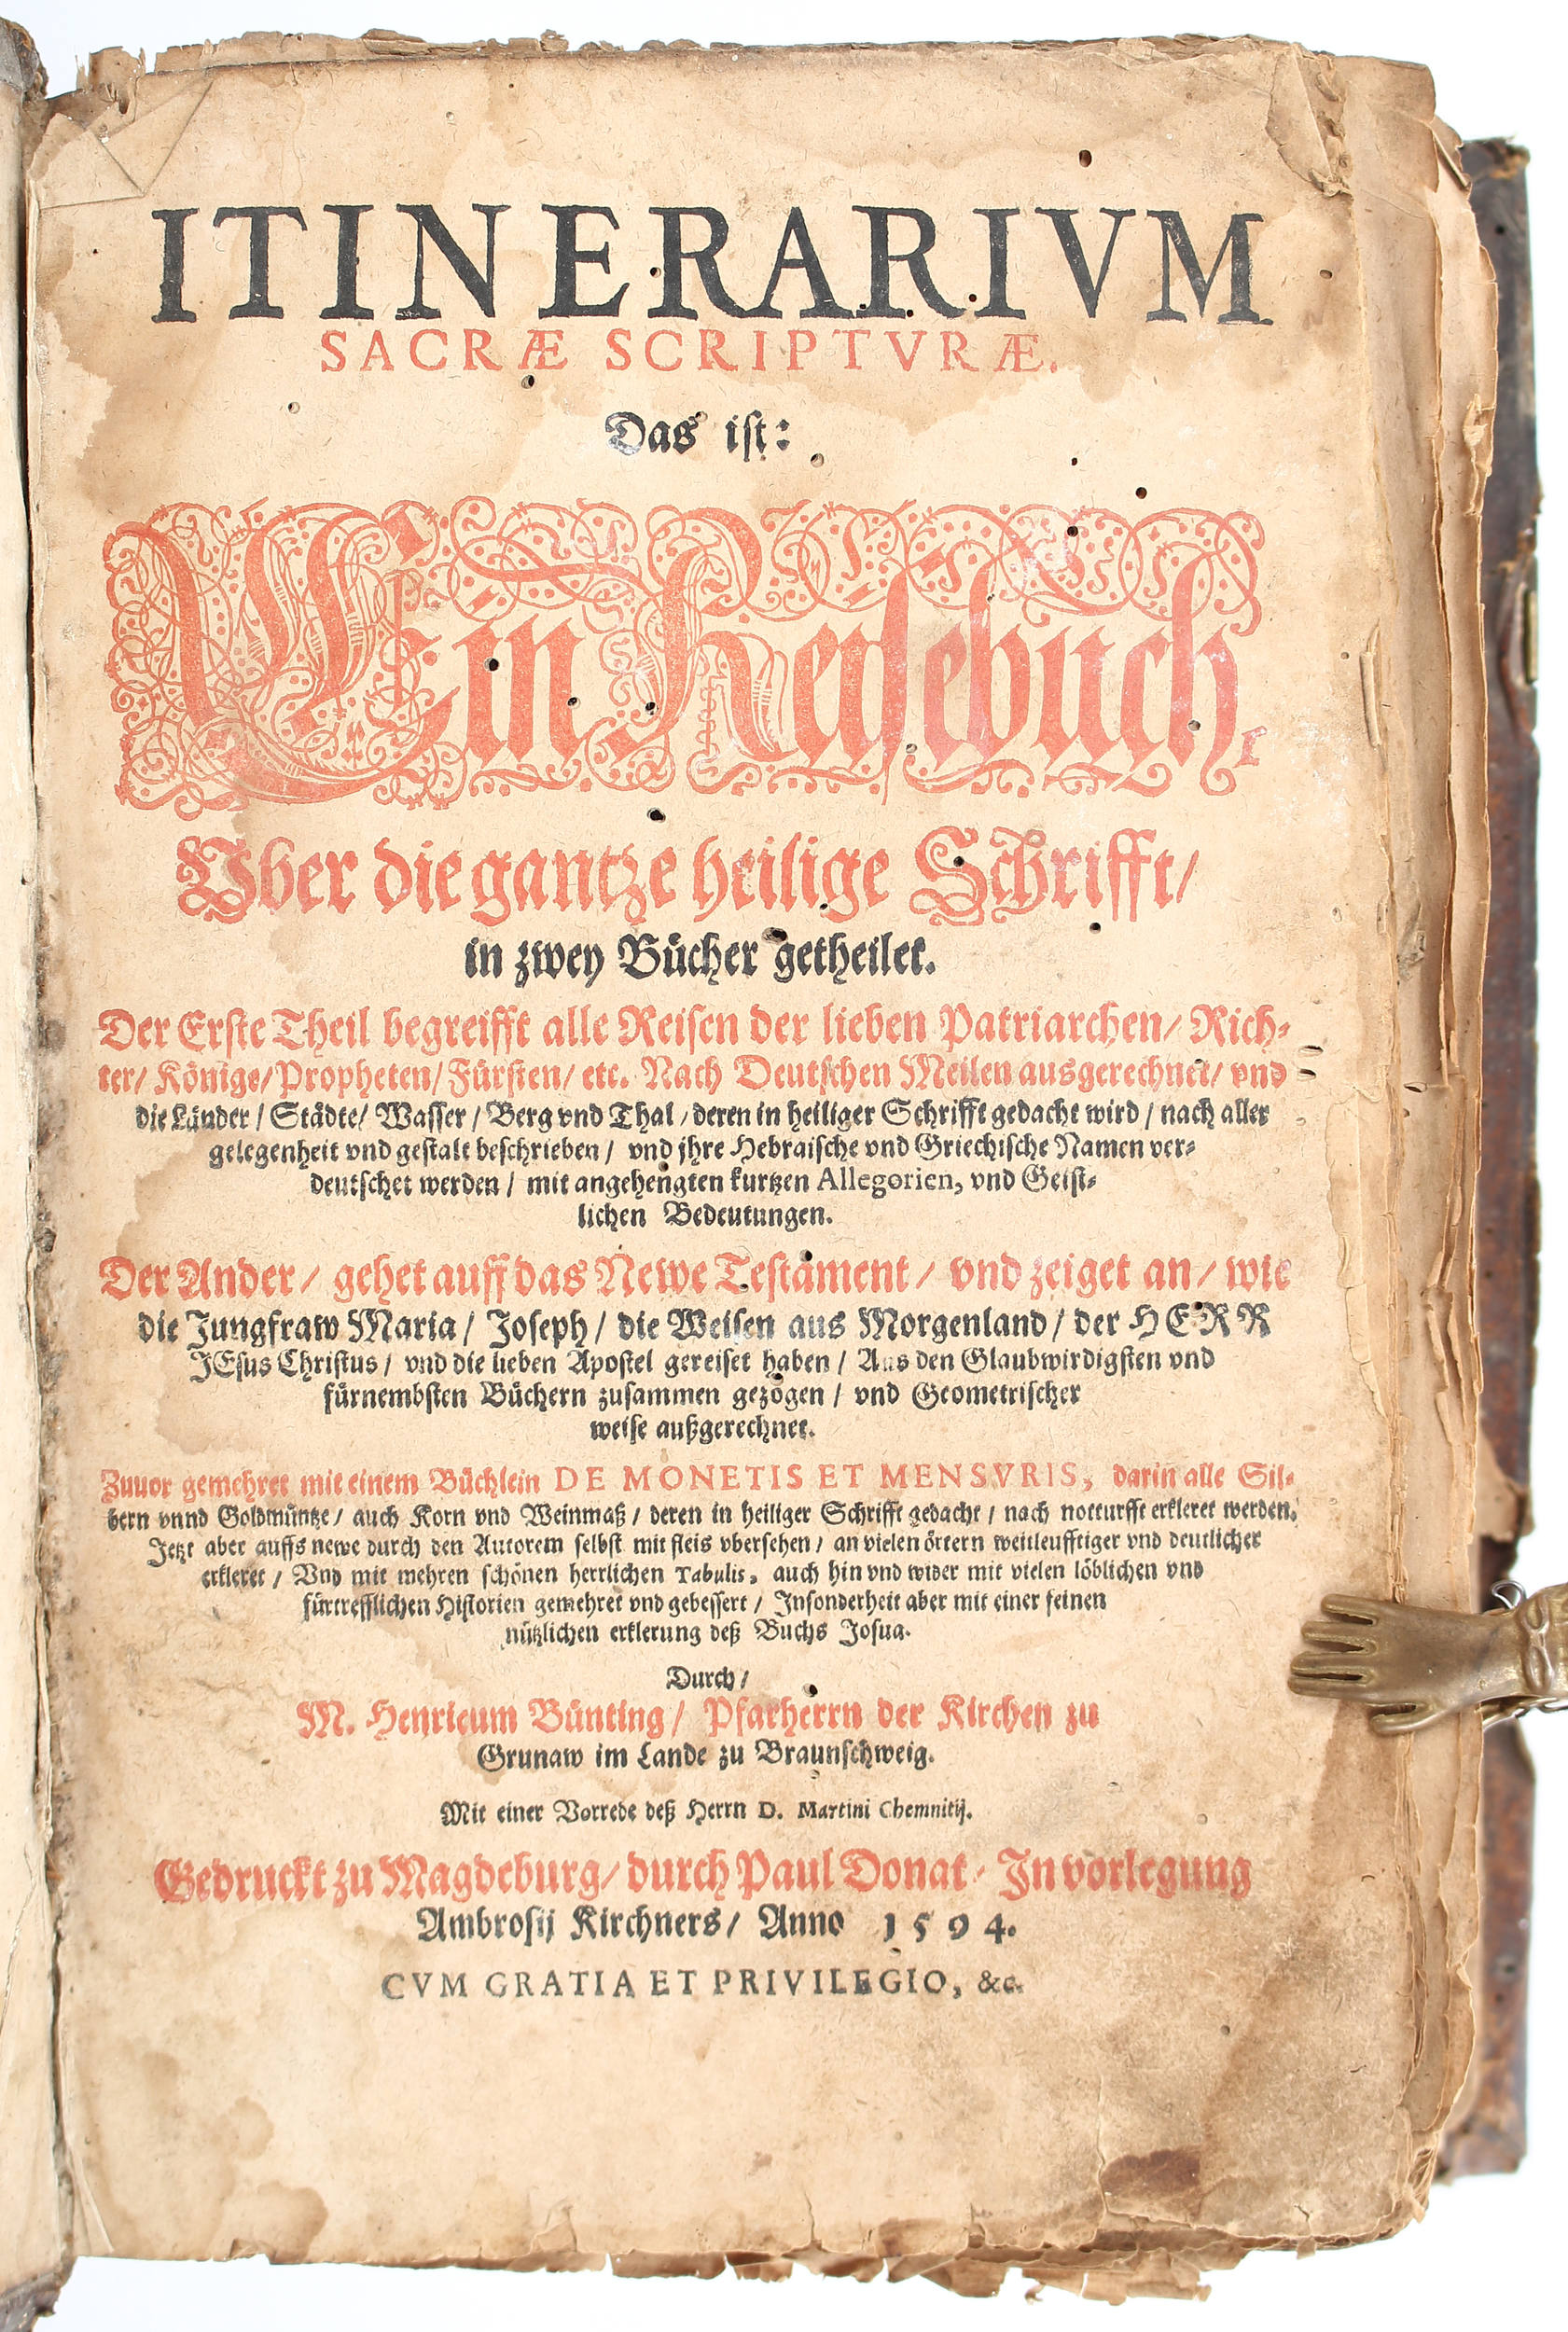 ITINERARIVM
SACRÆ SCRIPTVRÆ.
Das ist:
Ein Reisebuch,
Vber die gantze heilige Schrifft/
in zwey Bücher getheilet.
Der Erste Theil begreifft alle Reisen der lieben Patriarchen/ Rich-
ter/ Könige/ Propheten/ Fürsten/ etc. Nach Deutschen Meilen ausgerechnet/ vnd
die Länder / Städte/ Wasser / Berg vnd Thal / deren in heiliger Schrifft gedacht wird / nach aller
gelegenheit vnd gestalt beschrieben / vnd jhre Hebraische vnd Griechische Namen ver-
deutschet werden / mit angehengten kurtzen Allegorien, vnd Geist-
lichen Bedeutungen.
Der Ander/ gehet auff das Newe Testament / vnd zeiget an/ wie
die Jungfraw Maria/ Joseph/ die Weisen aus Morgenland/ der HERR
JEsus Christus/ vnd die lieben Apostel gereiset haben / Aus den Glaubwirdigsten vnd
fürnembsten Büchern zusammen gezogen / vnd Geometrischer
weise außgerechnet.
Zuuor gemehret mit einem Büchlein DE MONETIS ET MENSVRIS, darin alle Sil-
bern vnnd Goldmüntze/ auch Korn vnd Weinmaß/ deren in heiliger Schrifft gedacht / nach notturfft erkleret werden.
Jetzt aber auffs newe durch den Autorem selbst mit fleis vbersehen / an vielen örtern weitleufftiger vnd deutlicher
erkleret / Vnd mit mehren schönen herrlichen Tabulis, auch hin vnd wider mit vielen löblichen vnd
fürtrefflichen Historien gemehret vnd gebessert / Insonderheit aber mit einer feinen
nützlichen erklerung deß Buchs Josua.
Durch/
M. Henricum Bünting/ Pfarherrn der Kirchen zu
Grunaw im Lande zu Braunschweig.
Mit einer Vorrede deß Herrn D. Martini Chemnitij.
Gedruckt zu Magdeburg/ durch Paul Donat/ In vorlegung
Ambrosij Kirchners/ Anno 1594.
CVM GRATIA ET PRIVILEGIO, &c.